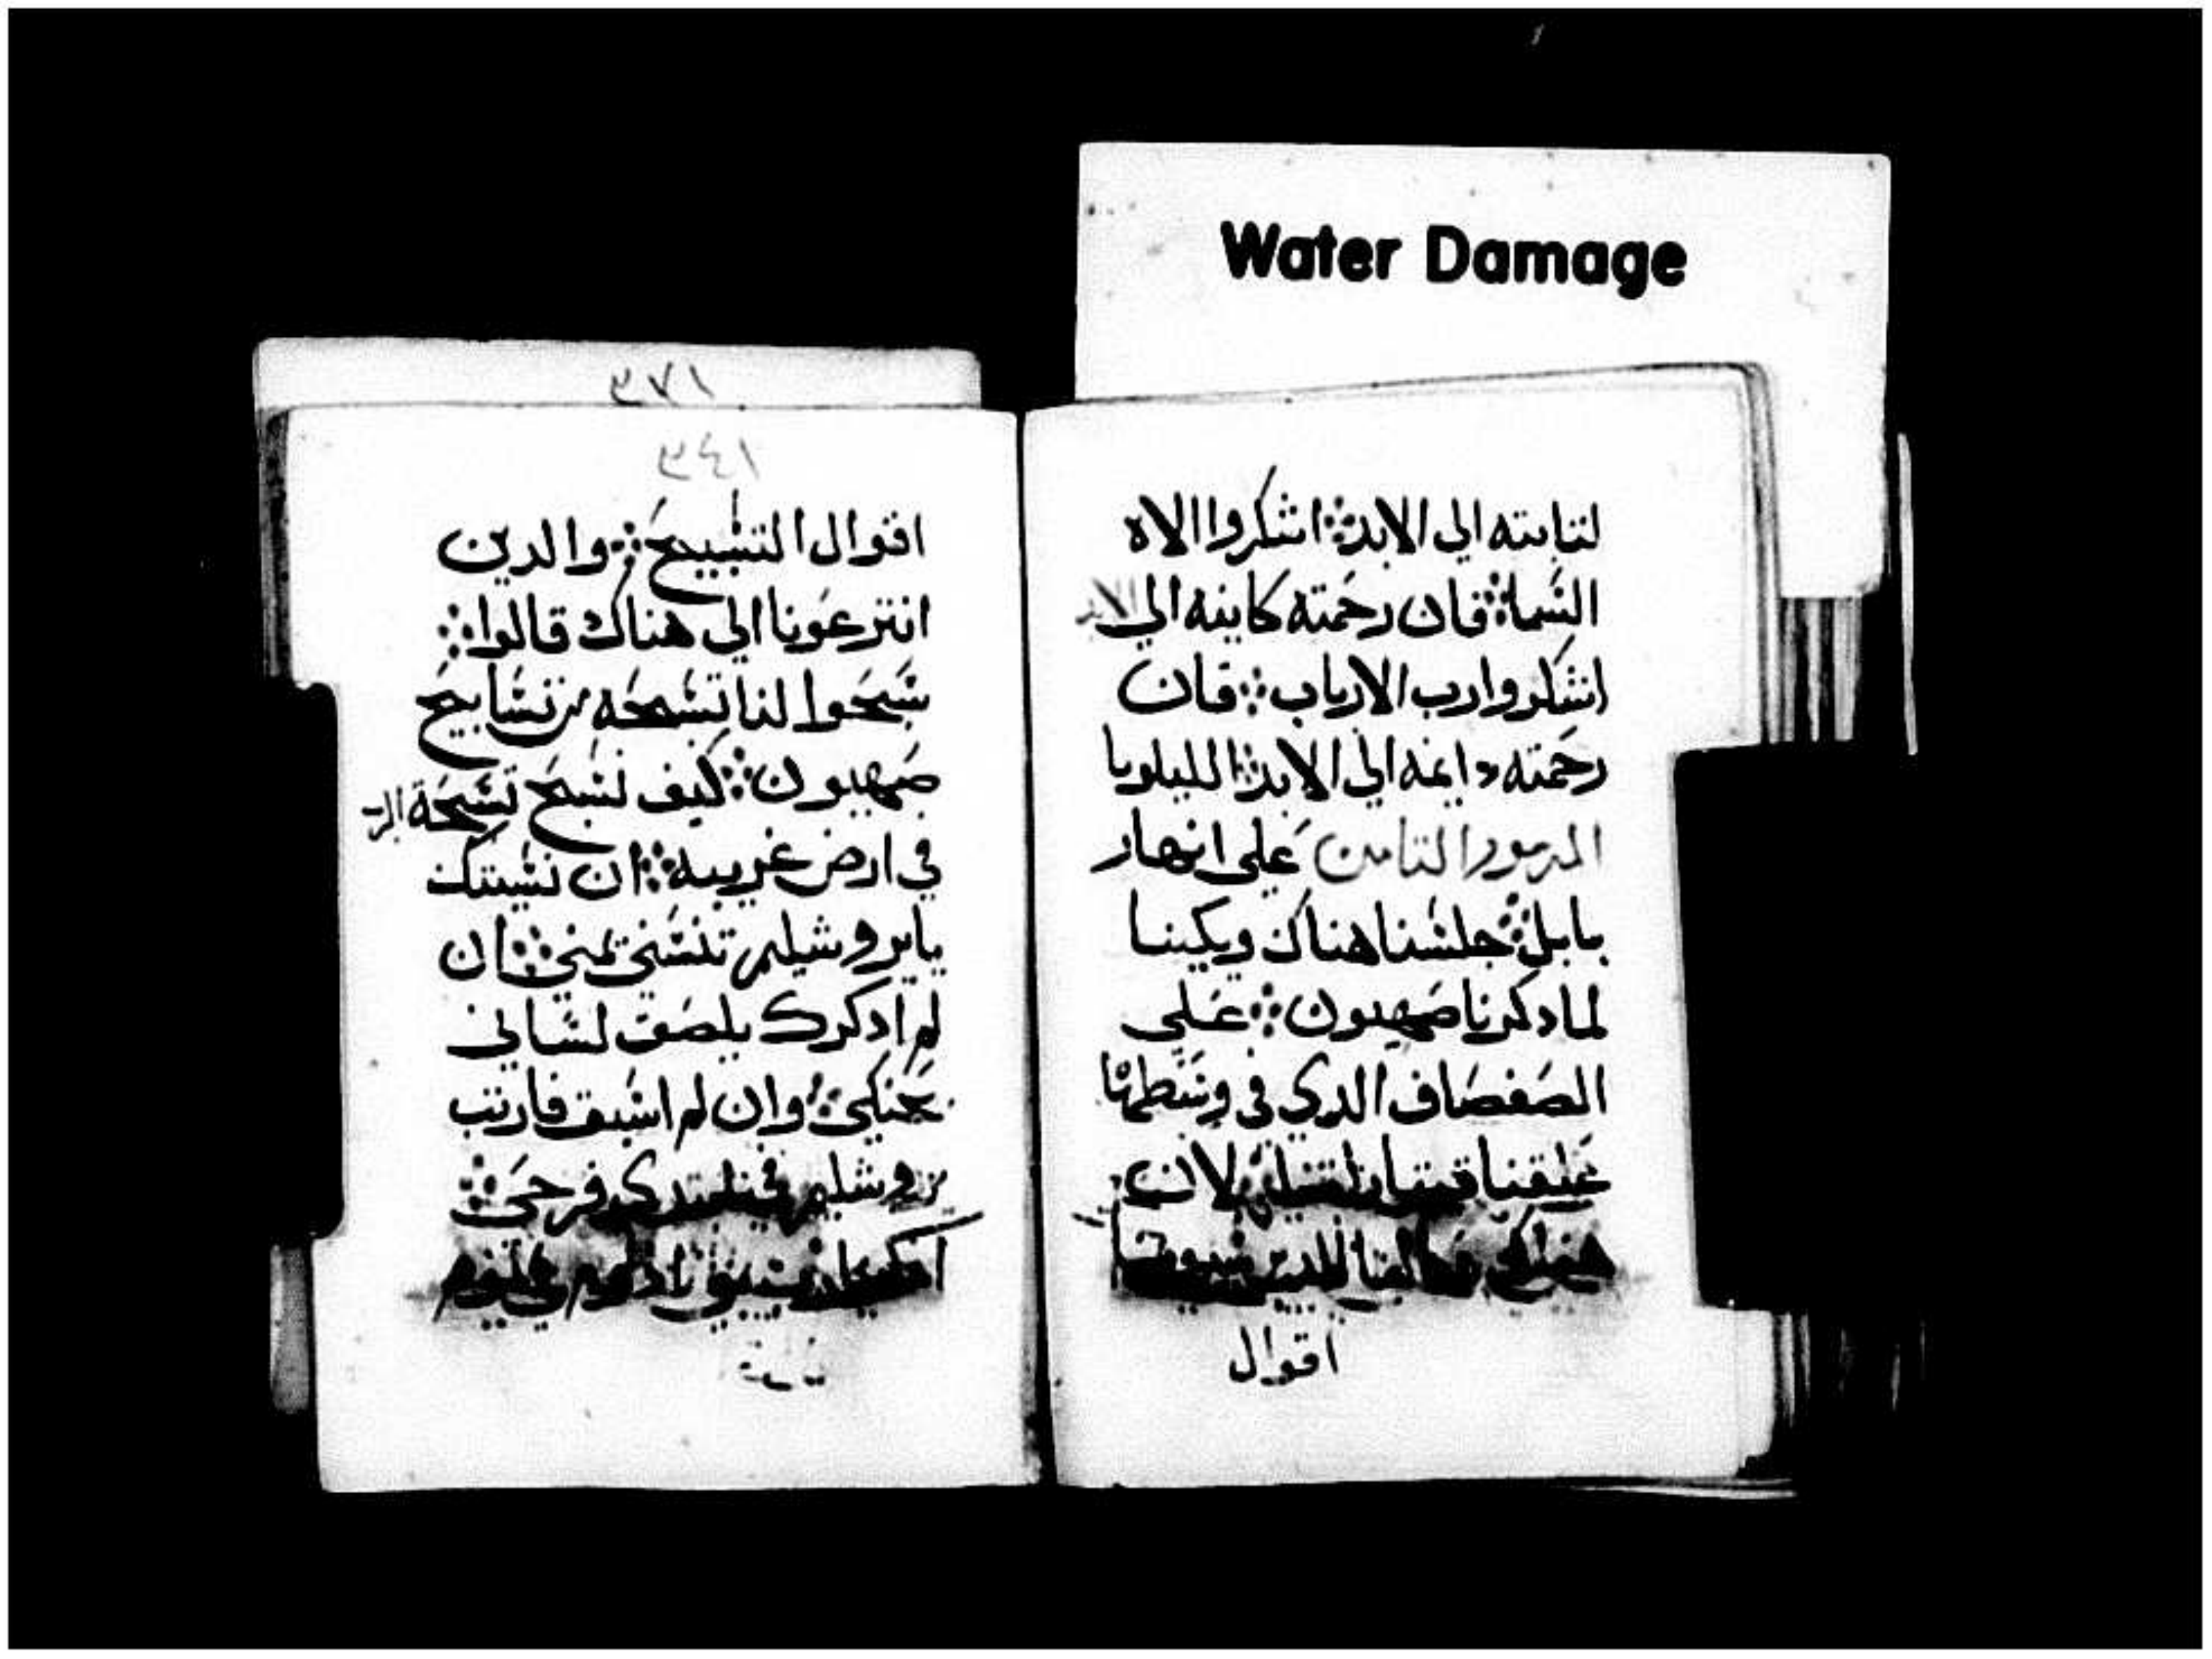 Water Damage
لتابته الي الابد ܀ اشكروا الاه
السما ܀ فان رحمته كاينه الي الابد
اشكروا رب الارباب ܀ فان
رحمته دايمه الي الابد ܀ الليلويا
المزمور التامن علي انهار
بابل ܀ جلسنا هناك وبكينا
لما دكرنا صهيون ܀ علي
الصفصاف الدي في وسطها
علقنا لان
هناك الدين
اقوال
١٧٣
١٤٣
اقوال التسبيح ܀ والدين
انتزعونا الي هناك قالوا ܀
سبحوا لنا تسبحه من تسابيح
صهيون ܀ كيف نسبح تسبحة الر
في ارض غريبه ܀ ان نسيتك
يايروشليم تنسني يمني ܀ ان
لم ادكرك يلصق لساني
بحنكي ܀ وان لم اسبق فارتب
يروشليم في فرحي ܀
ادوم في يوم